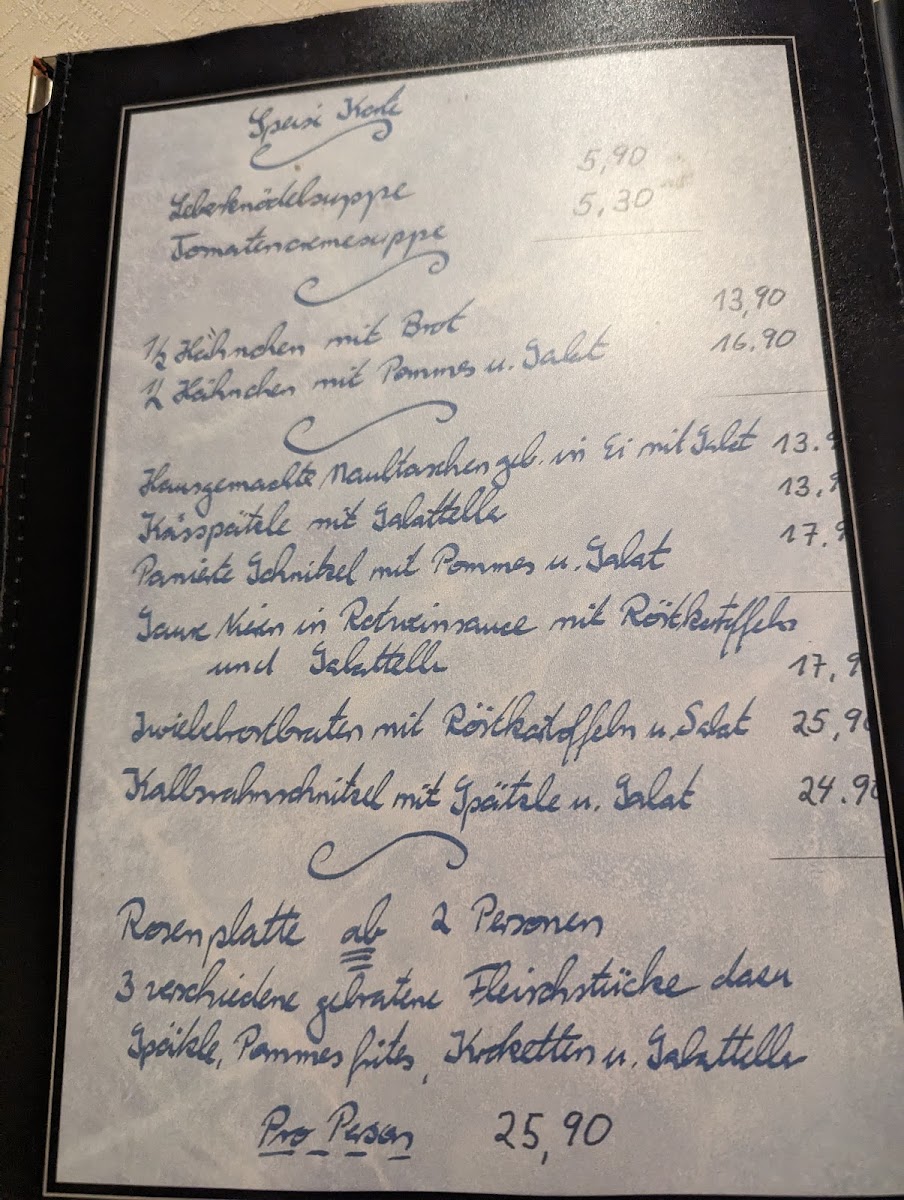 Speise Karte
Leberknödelsuppe 5,90
Tomatencremesuppe 5,30
1/2 Hähnchen mit Brot 13,90
1/2 Hähnchen mit Pommes u. Salat 16.90
Hausgemachte Maultaschen geb. in Ei mit Salat 13.9
Kässpätzle mit Salatteller 13,9
Panierte Schnitzel mit Pommes u. Salat 17.9
Saure Nieren in Rotweinsauce mit Röstkartoffeln
und Salatteller 17,9
Zwiebelrostbraten mit Röstkartoffeln u. Salat 25,90
Kalbsrahmschnitzel mit Spätzle u. Salat 24.90
Rosenplatte ab 2 Personen
3 verschiedene gebratene Fleischstücke dazu
Spätzle, Pommes frites, Kroketten u. Salatteller
Pro Person 25,90